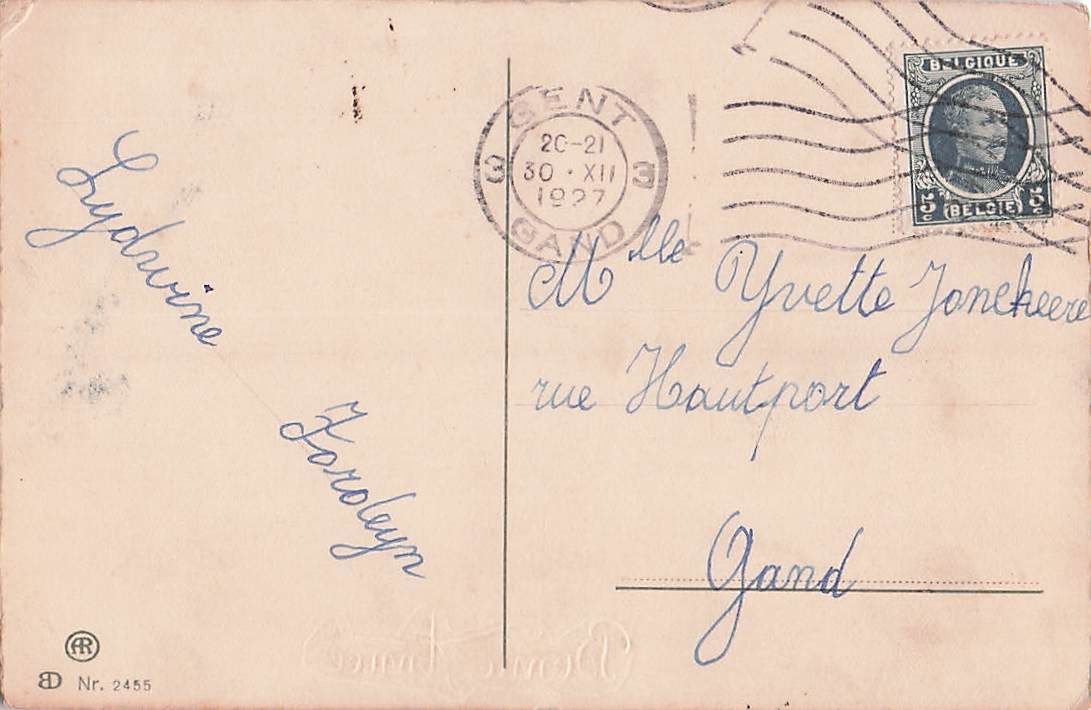 Lydwine
Karoleyn
GENT
20-21
30 · XII
1927
3 3
GAND
BELGIQUE
5c (BELGIË) 5c
Mlle Yvette Jonckeere
rue Hautport
Gand
Bonne Année
AR
BD Nr. 2455